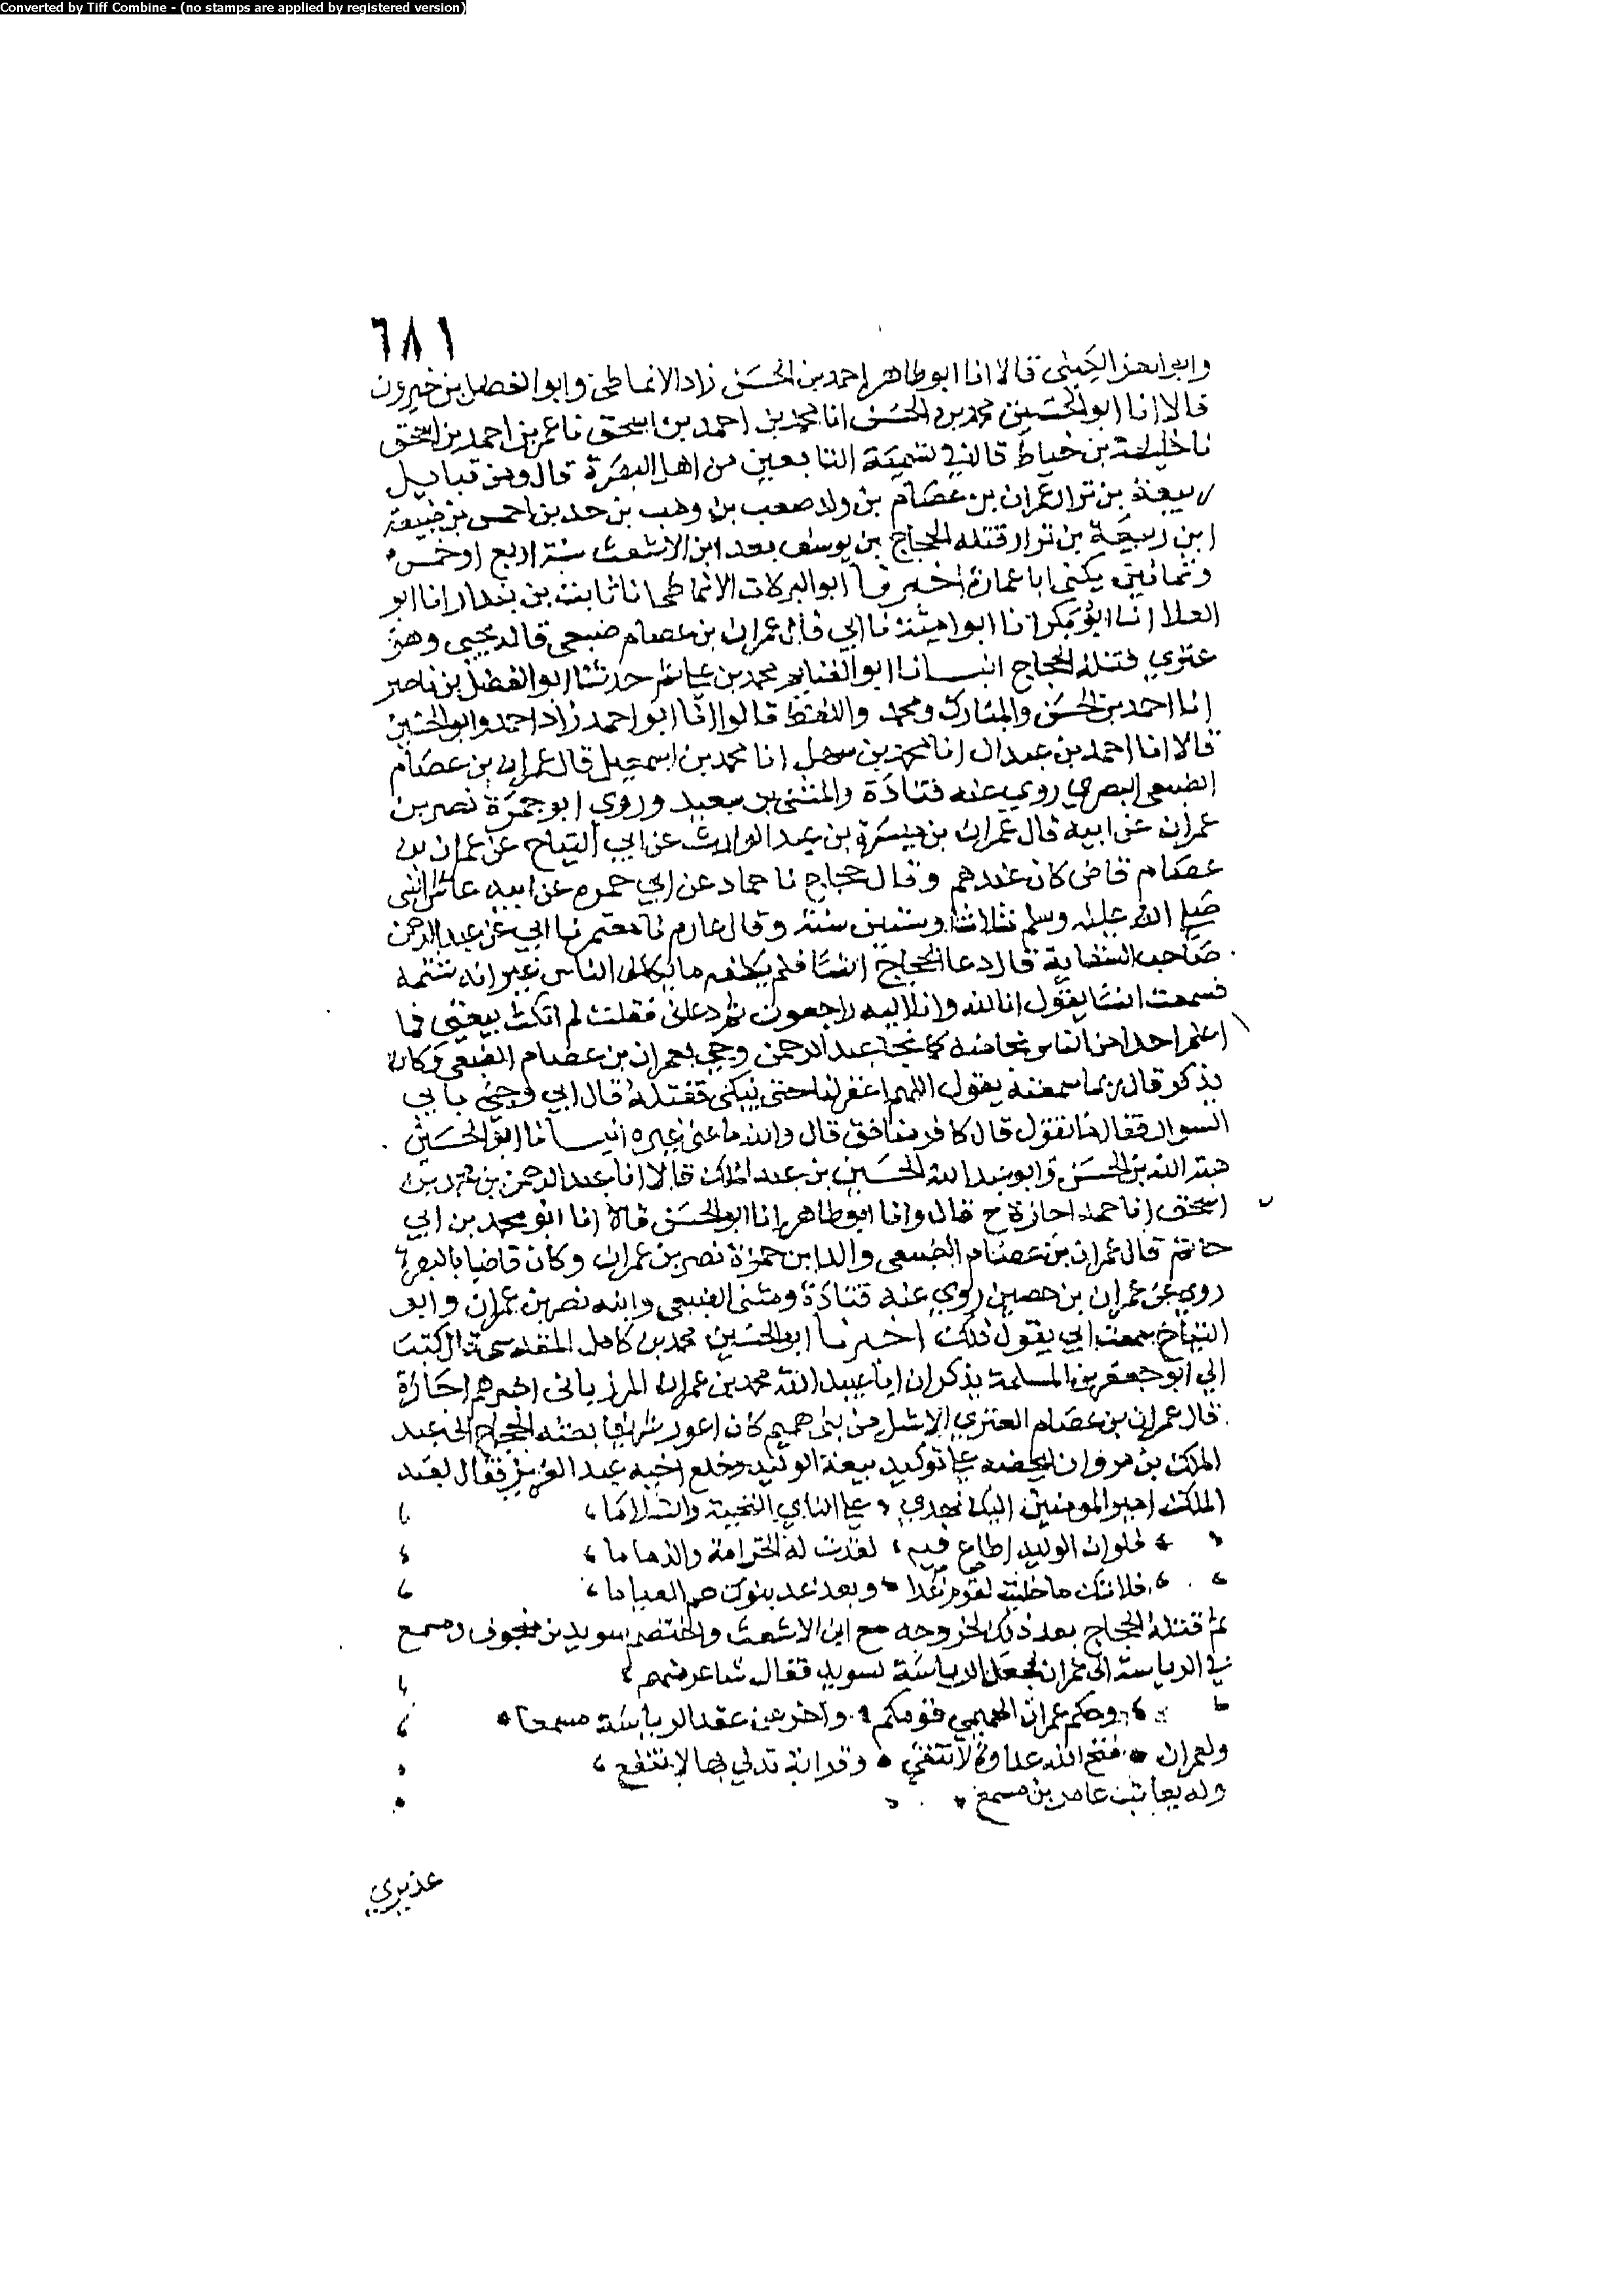 Converted by Tiff Combine - (no stamps are applied by registered version)
٦٨١
وابو العز الكيلى قالا انا ابو طاهر احمد بن الحسن زاد الانماطى وابو الفضل بن خيرون
قالا انا ابو الحسين محمد بن الحسن انا محمد بن احمد بن اسحق نا عمر بن احمد بن اسحق
نا خليفة بن خياط قال في تسمية التابعين من اهل البصرة قال ومن قبايل
ربيعة بن نزار عمران بن عصام بن ولد صعب بن وهب بن حد بن احمس بن ضبيعة
ابن ربيعة بن نزار قتله الحجاج بن يوسف بعد ابن الاشعث سنة اربع او خمس
وثمانين يكنى ابا عمارة اخبرنا ابو البركات الانماطي انا ثابت بن بندار انا ابو
العلا انا ابو بكر انا ابو امية نا ابي قال عمران بن عصام ضبعي قال يحيى وهو
عنزي قتله الحجاج انبانا ابو الغنايم محمد بن علي ثم حدثنا ابو الفضل بن ناصر
انا احمد بن الحسن والمبارك ومحمد واللفظ قالوا انا ابو احمد زاد احمد وابو الحسين
قالا انا احمد بن عبدان انا محمد بن سهل انا محمد بن اسمعيل قال عمران بن عصام
الضبعي البصري روي عنه قتادة والمثنى بن سعيد وروي ابو جمرة نصر بن
عمران عن ابيه قال عمران بن ميسرة بن عبد الوارث عن ابي التياح عن عمران بن
عصام قاض كان عندهم وقال حجاج نا حماد عن ابي حمره عن ابيه عاش النبي
صلي الله عليه وسلم ثلاثا وستين سنة وقال عارم نا معتمر نا ابي عن عبد الرحمن
صاحب السقاية قال دعا الحجاج انسا فلم يكلمه ما يكلم الناس غير انه شتمه
فسمعت انسا يقول انا لله وانا اليه راجعون ثم دعانى فقلت لم انكث بيعتي فما
اعلم احدا من الناس نجا منه كما نجا عبد الرحمن وجي بعمران بن عصام الضبعي وكان
يذكر قال ربما سمعته يقول اللهم اغفر لنا حتى يبكي فقتله قال ابي وجئ بابي
السوار فقال ما تقول قال كافر منافق قال والله ما عنى غيره انبانا ابو الحسين
هبة الله بن الحسن وابو عبد الله الحسين بن عبد الملك قالا انا عبد الرحمن بن محمد بن
اسحق انا حمد اجازة ح قال وانا ابو طاهر انا ابو الحسن قالا انا ابو محمد بن ابي
حاتم قال عمران بن عصام الضبعي والد ابن حمزة نصر بن عمران وكان قاضيا بالبصرة
روي عن عمران بن حصين روي عنه قتادة ومثنى الضبعي وابنه نصر بن عمران وابو
التياح سمعت ابي يقول ذلك اخبرنا ابو الحسين محمد بن كامل المقدسي قال كتب
الي ابو جعفر بن المسلمة يذكر ان ابا عبيد الله محمد بن عمران المرزباني اخبرهم اجازة
قال عمران بن عصام العنزي الاشل من بني هميم كان اعور شاعرا بعثه الحجاج الى عبد
الملك بن مروان ليحضه على توكيد بيعة الوليد وخلع اخيه عبد العزيز فقال لعبد
الملك امير المومنين اليك نهدي على الناي التحية والسلاما
فلو ان الوليد اطاع فيه لعذت له الخزامة والذماما
فلا تك ما حلبت لقوم غدا وبعد غد بنوك هم العياما
ثم قتله الحجاج بعد ذلك لخروجه مع ابن الاشعث واختصم سويد بن منجوف ومسمع
في الرياسة الى عمران فجعل الرياسة لسويد فقال شاعر منهم
وحكم عمران الهميمي قومكم واخر عن عقد الرياسة مسمعا
ولعمران فتح الله عداوة لا تتقي وقرابة تدلي بها لا تنفع
وله يعاتب عامر بن مسمع
عذيري